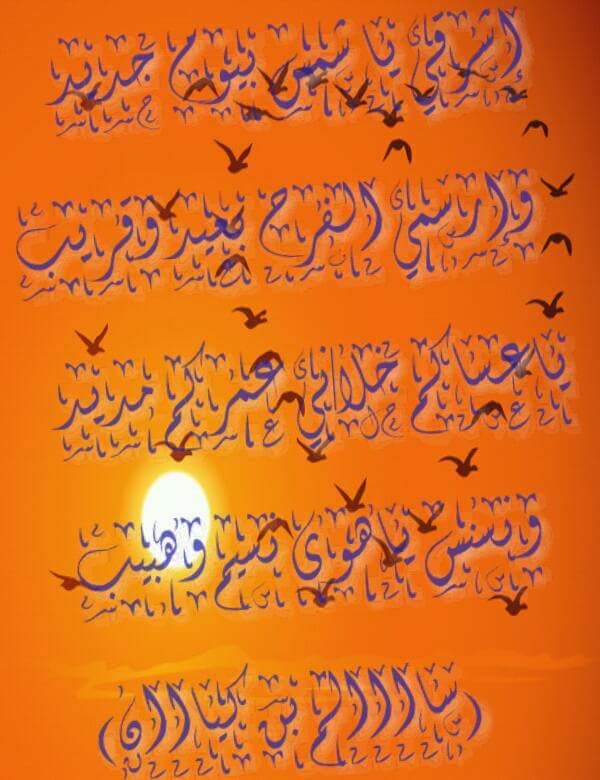 إشرقي يا شمس بيوم جديد
وإرسمي الفرح بعيد وقريب
يا عساكم خلاني عمركم مديد
ونسنس يا هوى نسيم وهبيب
(سااااالم بن كيااان)